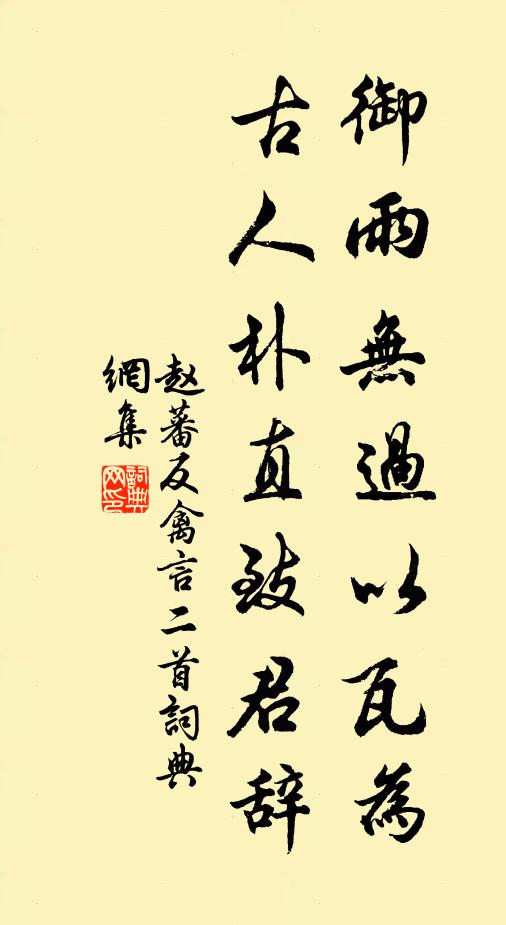 御雨無過以瓦為
古人朴直致君辞
赵蕃反禽言二首詞典
網集
詞典網印